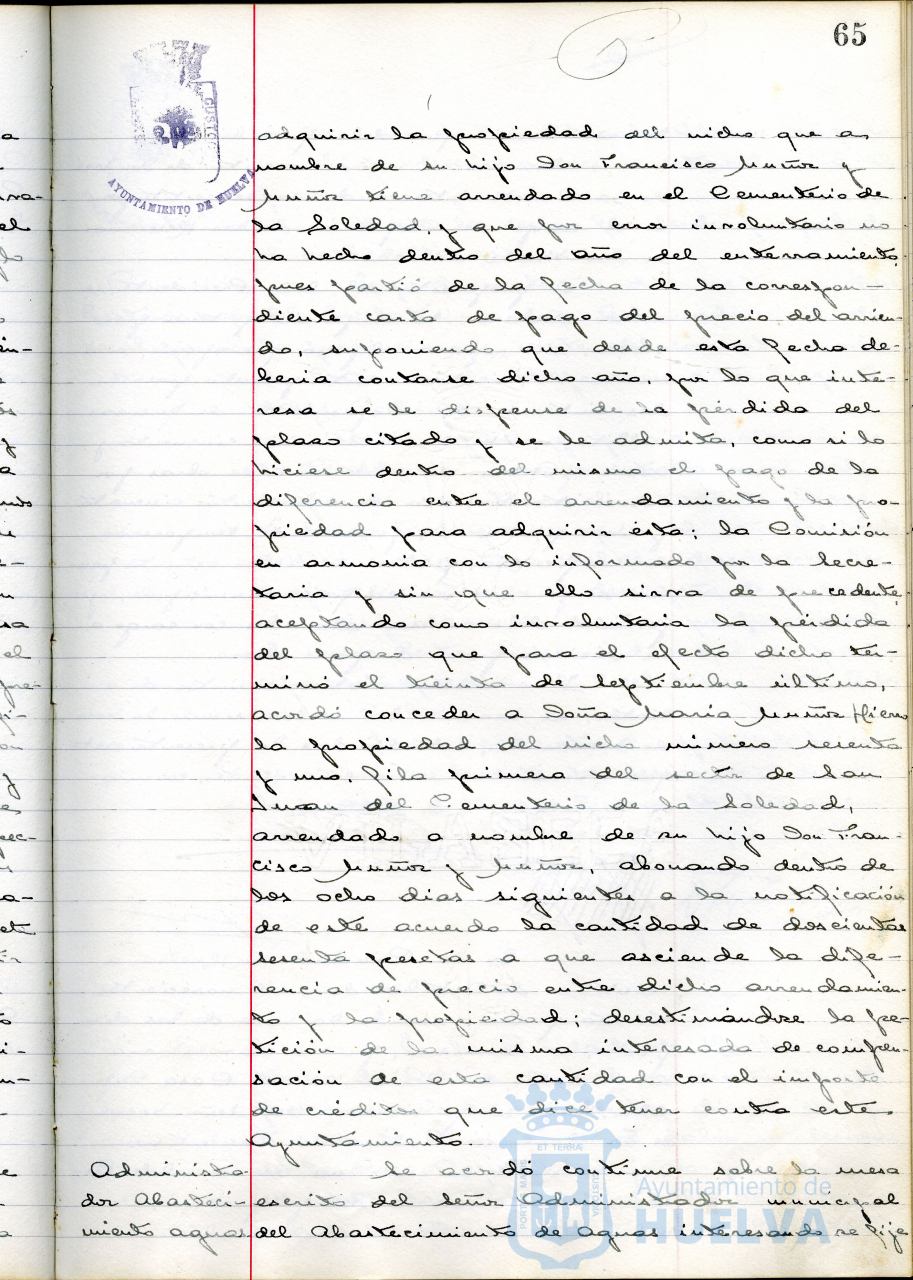 65
AYUNTAMIENTO DE HUELVA
adquirir la propiedad del nicho que a
nombre de su hijo Don Francisco Muñoz y
Muñoz tiene arrendado en el Cementerio de
la Soledad, y que por error involuntario no
ha hecho dentro del año del enterramiento,
pues partió de la fecha de la correspon-
diente carta de pago del precio del arrien-
do, suponiendo que desde esta fecha de-
beria contarse dicho año, por lo que inte-
resa se le dispense de la pérdida del
plazo citado y se le admita, como si lo
hiciese dentro del mismo el pago de la
diferencia entre el arrendamiento y la pro-
piedad para adquirir ésta; la Comisión
en armonia con lo informado por la Secre-
taria y sin que ello sirva de precedente,
aceptando como involuntaria la pérdida
del plazo que para el efecto dicho ter-
minó el treinta de Septiembre último,
acordó conceder a Doña Maria Muñoz Hierro
la propiedad del nicho número sesenta
y uno, fila primera del sector de San
Juan del Cementerio de la Soledad,
arrendado a nombre de su hijo Don Fran-
cisco Muñoz y Muñoz, abonando dentro de
los ocho dias siguientes a la notificación
de este acuerdo la cantidad de doscientas
sesenta pesetas a que asciende la dife-
rencia de precio entre dicho arrendamien-
to y la propiedad; desestimándose la pe-
tición de la misma interesada de compen-
sación de esta cantidad con el importe
de créditos que dice tener contra este
Ayuntamiento.
Administra-
dor Abasteci-
miento aguas
Se acordó continue sobre la mesa
escrito del Señor Administrador municipal
del Abastecimiento de Aguas interesando se fije
Ayuntamiento de
HUELVA